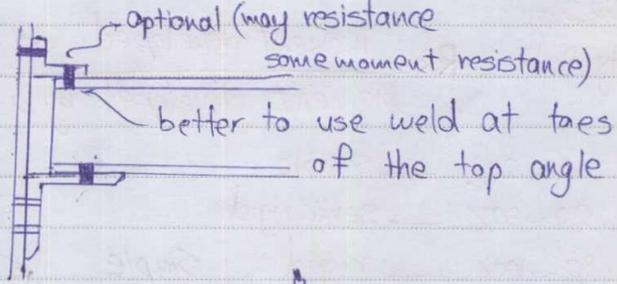 optional (may resistance
some moment resistance)
better to use weld at toes
of the top angle